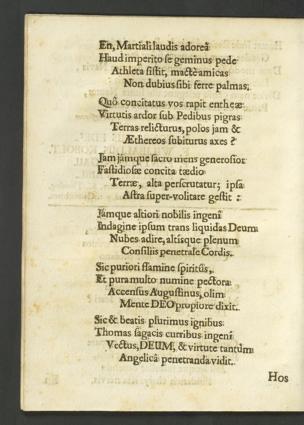 En, Martiali laudis adoreâ
Haud imperito se geminus pede
Athleta sistit, mactè amicas
Non dubius sibi ferre palmas,
Quô concitatus vos rapit entheæ
Virtutis ardor sub Pedibus pigras
Terras relicturus, polos jam &
Æthereos subiturus axes?
Jam jamque sacro mens generosior
Fastidiosæ concita tædio
Terræ, alta perscrutatur; ipsa
Astra super-volitare gestit:
Jamque altiori nobilis ingenî
Indagine ipsum trans liquidas Deum
Nubes adire, altisque plenum
Consiliis penetrale Cordis.
Sic puriori flamine spiritus,
Et pura multo numine pectora
Accensus Augustinus, olim
Mente DEO propiore dixit.
Sic & beatis plurimus ignibus
Thomas sagacis curribus ingenî
Vectus, DEUM, & virtute tantûm
Angelicâ penetranda vidit.
Hos